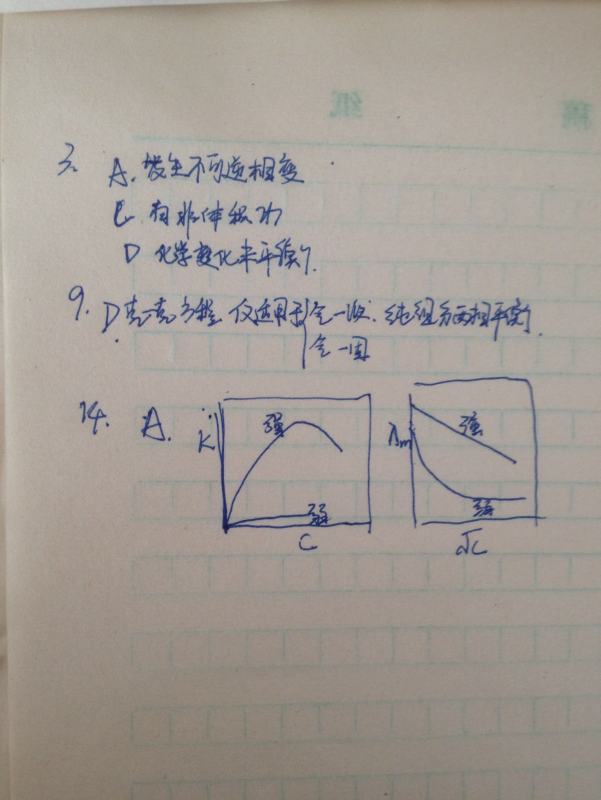 纸 稿
3. A. 发生不可逆相变
C. 有非体积功
D 化学变化未平衡
9. D. 克-克方程 仅适用于 气-液 纯组分两相平衡
气-固
14. A.
K 强 弱 C
Λm 强 弱 √C